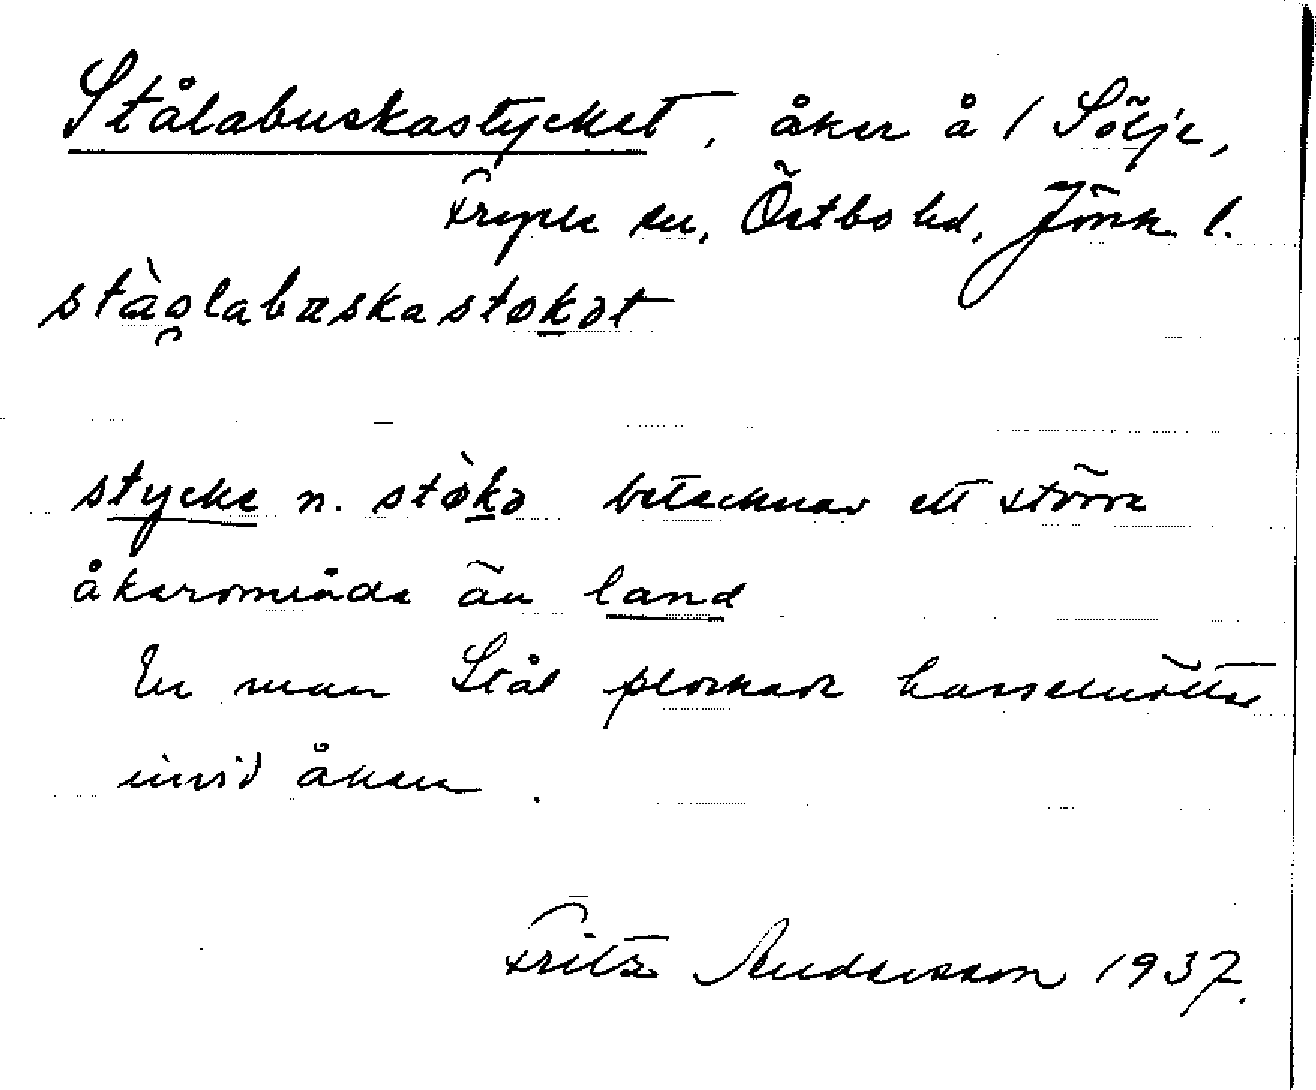 Stålabuskastycket, åker å 1 Sölje,
Fryele sn, Östbo hd, Jönk l.
stàolabuskastøkət
stycke n. stø̀kə betecknar ett större
åkerområde än land
En man Stål plockade hasselnötter
invid åkern.
Fritz Andersson 1937.